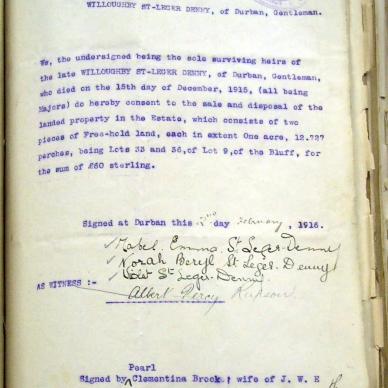 WILLOUGHBY ST-LEGER DENNY, of Durban, Gentleman.
We, the undersigned being the sole surviving heirs of
the late WILLOUGHBY ST-LEGER DENNY, of Durban, Gentleman,
who died on the 15th day of December, 1915, (all being
Majors) do hereby consent to the sale and disposal of the
landed property in the Estate, which consists of two
pieces of Free-hold land, each in extent One acre, 12.727
perches, being Lots 33 and 36, of Lot 9, of the Bluff, for
the sum of £60 sterling.
Signed at Durban this day February, 1916.
Mabel Emma St Leger-Denny
Norah Beryl St Leger-Denny
St Leger-Denny
AS WITNESS :-
Albert Percy
Pearl
Signed by Clementina Brock, wife of J. W. E